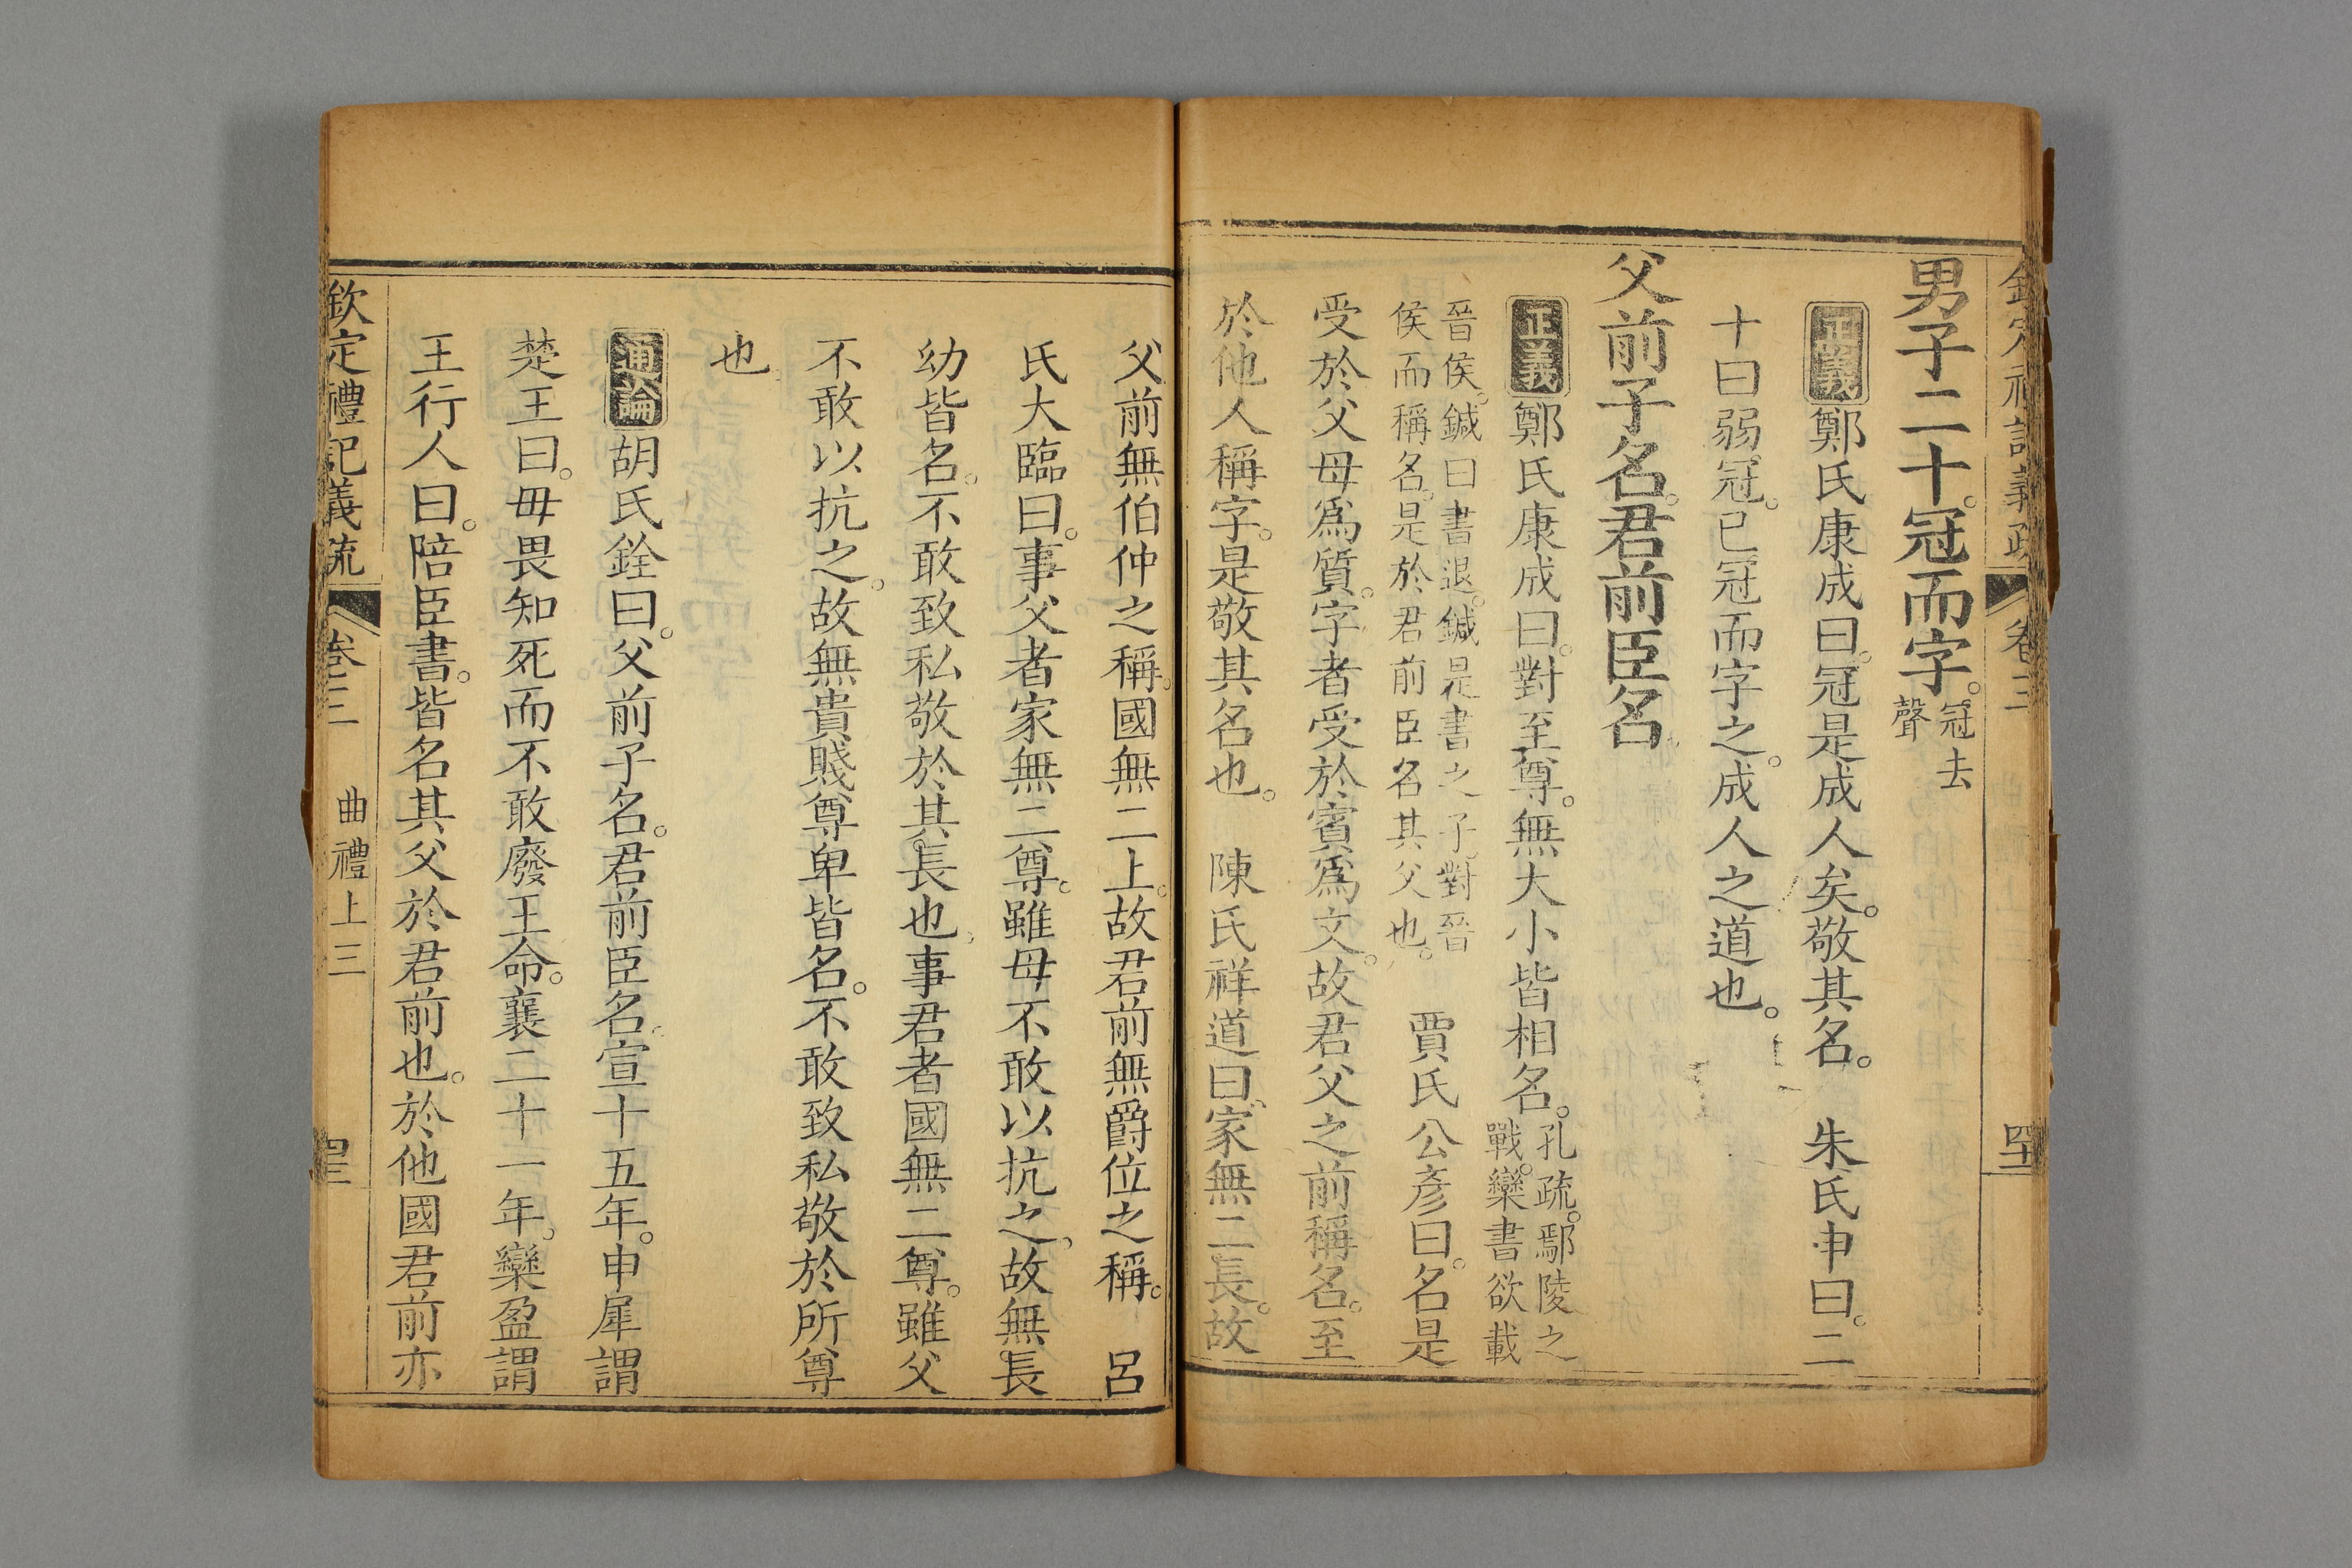 欽定禮記義疏 卷三 
男子二十。冠而字。冠去聲
正義 鄭氏康成曰。冠是成人矣。敬其名。 朱氏申曰。二
十曰弱冠。已冠而字之。成人之道也。
父前子名。君前臣名。
正義 鄭氏康成曰。對至尊。無大小皆相名。孔疏。鄢陵之戰。欒書欲載
晉侯。鍼曰書退。鍼是書之子。對晉侯而稱名。是於君前臣名其父也。 賈氏公彥曰。名是
受於父母爲質。字者受於賓爲文。故君父之前稱名。至
於他人稱字。是敬其名也。 陳氏祥道曰。家無二長。故
父前無伯仲之稱。國無二上。故君前無爵位之稱。 呂
氏大臨曰。事父者家無二尊。雖母不敢以抗之。故無長
幼皆名。不敢致私敬於其長也。事君者國無二尊。雖父
不敢以抗之。故無貴賤尊卑皆名。不敢致私敬於所尊
也。
通論 胡氏銓曰。父前子名。君前臣名。宣十五年。申犀謂
楚王曰。毋畏知死而不敢廢王命。襄二十一年。欒盈謂
王行人曰。陪臣書。皆名其父於君前也。於他國君前亦
欽定禮記義疏 卷三 曲禮上三